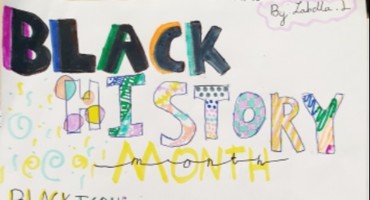 BLACK
By Izabella.L
HISTORY
MONTH
month
BLACK ICONS